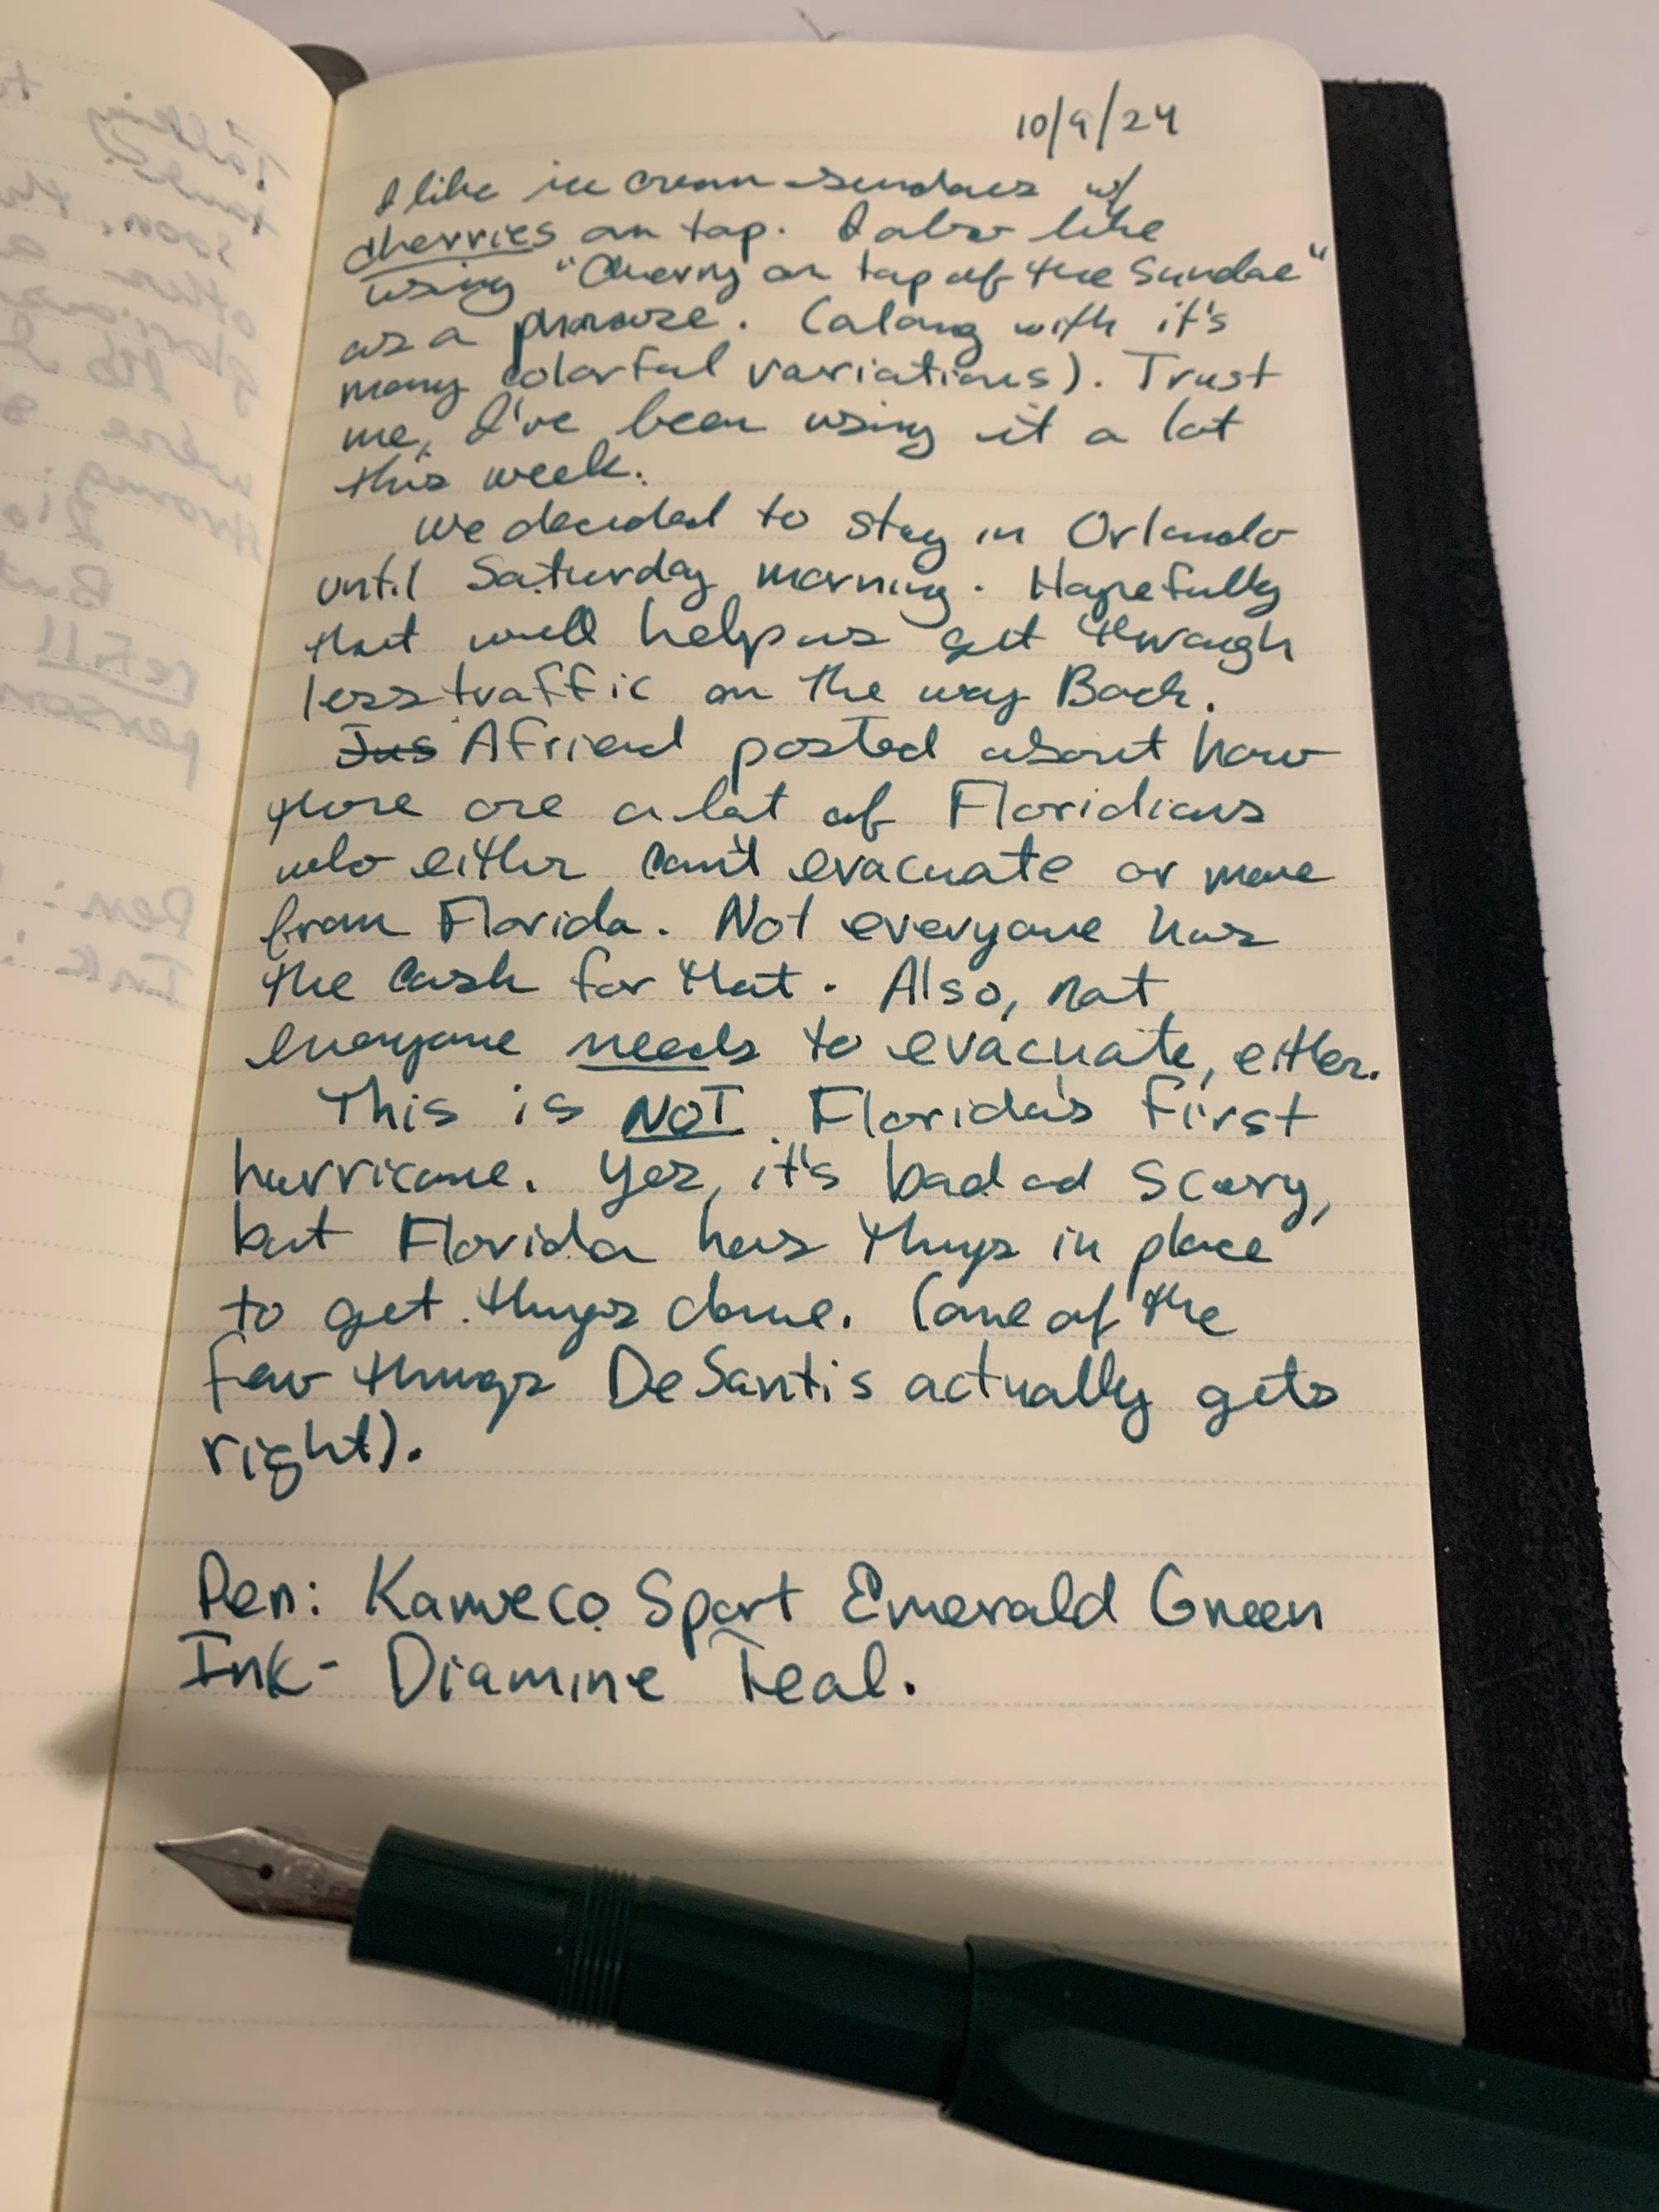 10/9/24
I like ice cream sundaes w/
cherries on top. I also like
using "Cherry on top of the Sundae"
as a phrase. (along with it's
many colorful variations). Trust
me, I've been using it a lot
this week.
We decided to stay in Orlando
until Saturday morning. Hopefully
that will help us get through
less traffic on the way Back.
Jus A friend posted about how
there are a lot of Floridians
who either can't evacuate or move
from Florida. Not everyone has
the cash for that. Also, not
everyone needs to evacuate, either.
This is NOT Florida's first
hurricane. Yes, it's bad ad scary,
but Florida has things in place
to get things done. (one of the
few things DeSantis actually gets
right).
Pen: Kaweco Sport Emerald Green
Ink- Diamine Teal.
Talking to
soon, the
a
were
wrong.
But
refill
person
Pen:
Ink: